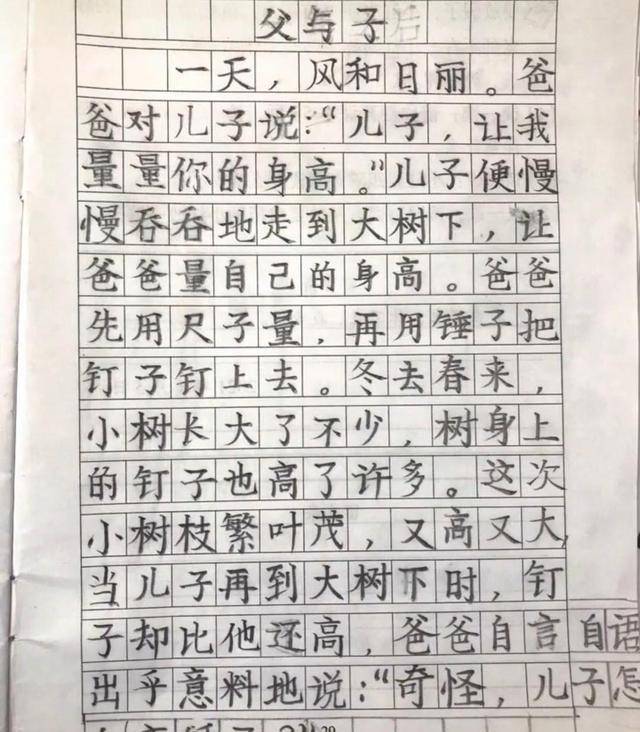 父与子
一天，风和日丽。爸
爸对儿子说：“儿子，让我
量量你的身高。”儿子便慢
慢吞吞地走到大树下，让
爸爸量自己的身高。爸爸
先用尺子量，再用锤子把
钉子钉上去。冬去春来，
小树长大了不少，树身上
的钉子也高了许多。这次
小树枝繁叶茂，又高又大，
当儿子再到大树下时，钉
子却比他还高，爸爸自言自语
出乎意料地说：“奇怪，儿子怎